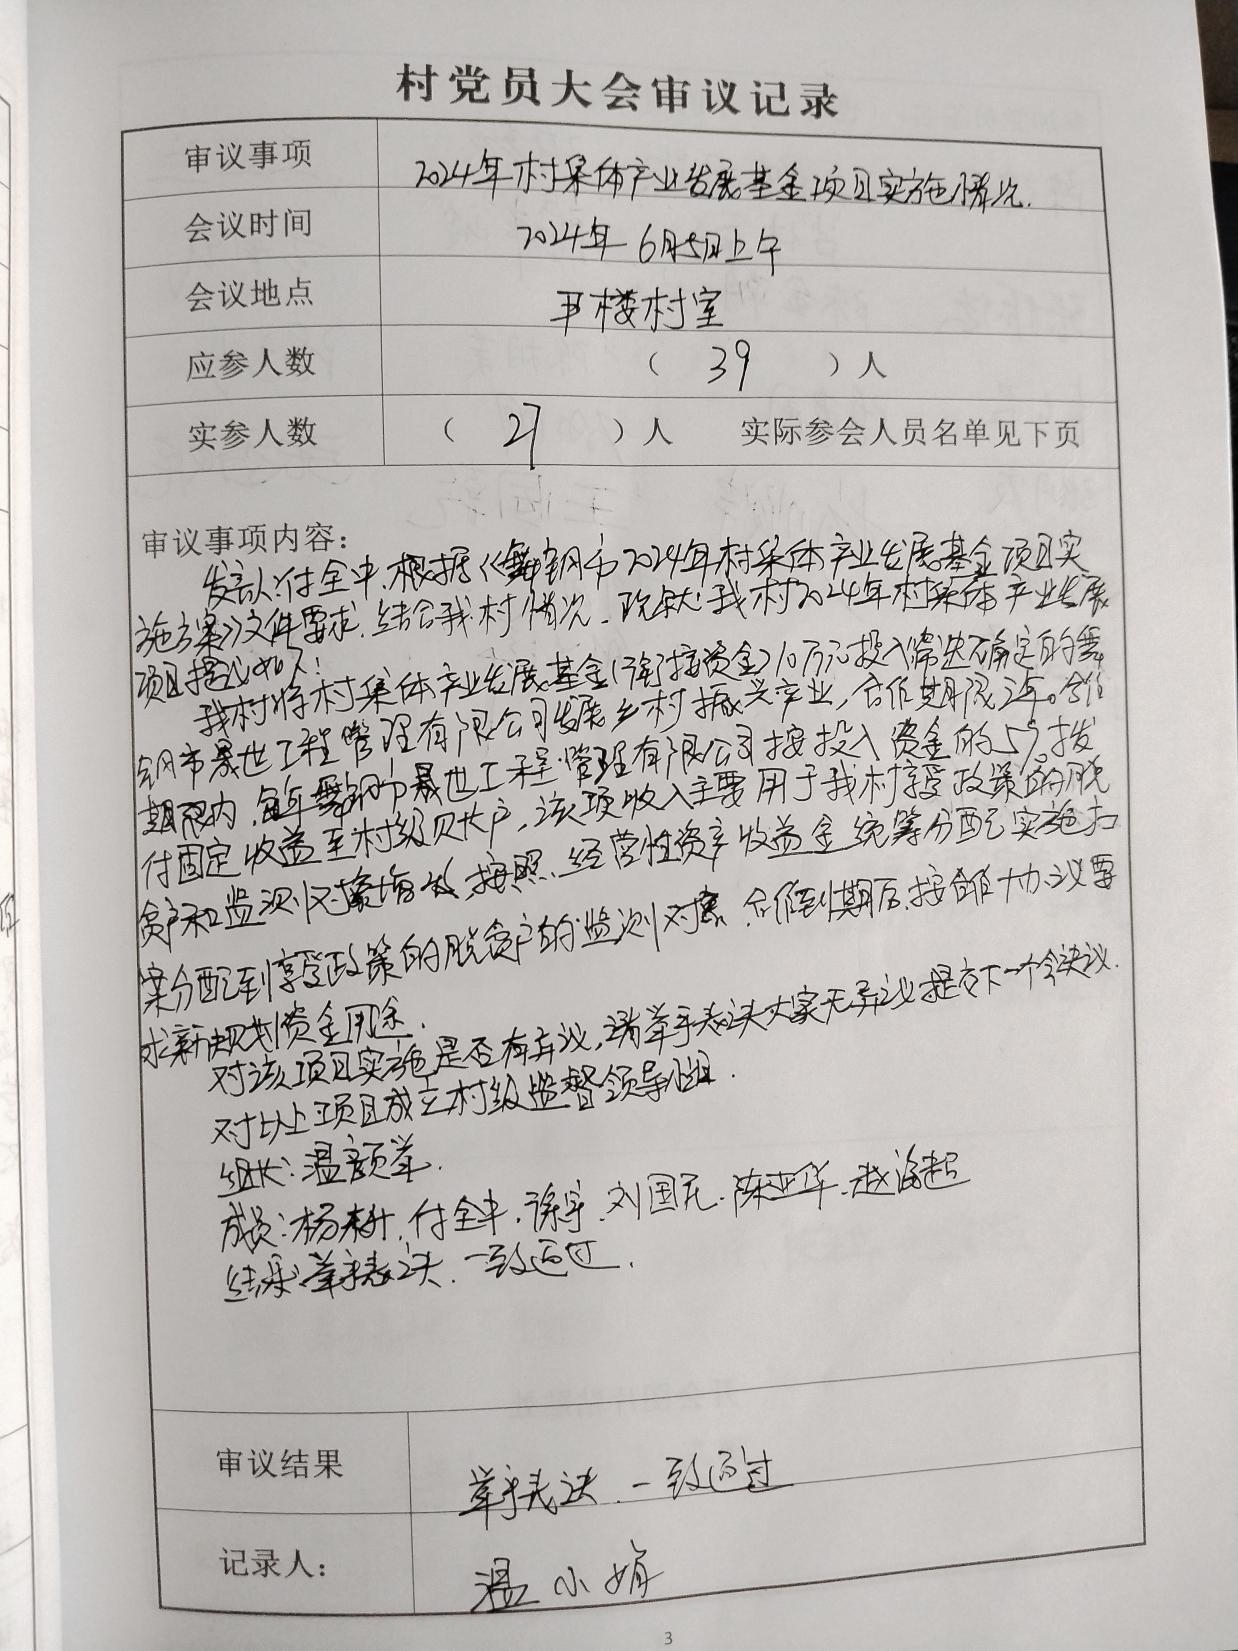 村党员大会审议记录
审议事项 2024年村集体产业发展基金项目实施情况.
会议时间 2024年6月5日上午
会议地点 楼村室
应参人数 （ 39 ）人
实参人数 （ 27 ）人 实际参会人员名单见下页
审议事项内容：
发言人:付全中.根据《舞钢市2024年村集体产业发展基金项目实
施方案》文件要求.结合我村情况.现就我村2024年村集体产业发展
项目提议如下:
我村将村集体产业发展基金(衔接资金)10万元投入筛选确定的舞
钢市晟世工程管理有限公司发展乡村振兴产业，合作期限2年。合作
期限内.每年舞钢市晟世工程管理有限公司按投入资金的5%拨
付固定收益至村级账户，该项收入主要用于我村享受政策的脱
贫户和监测对象.按照.经营性资产收益金统筹分配实施方
案分配到享受政策的脱贫户的监测对象.合作到期后.按合作协议要
求新规划资金用途.
对该项目实施是否有异议,请举手表决大家无异议提交下一个会决议.
对以上项目成立村级监督领导小组.
组长:温颜举.
成员:杨 付全中.徐宇.刘国 .陈亚华.赵海超
结果:举手表决.一致通过.
审议结果 举手表决.一致通过
记录人： 温小娟
3